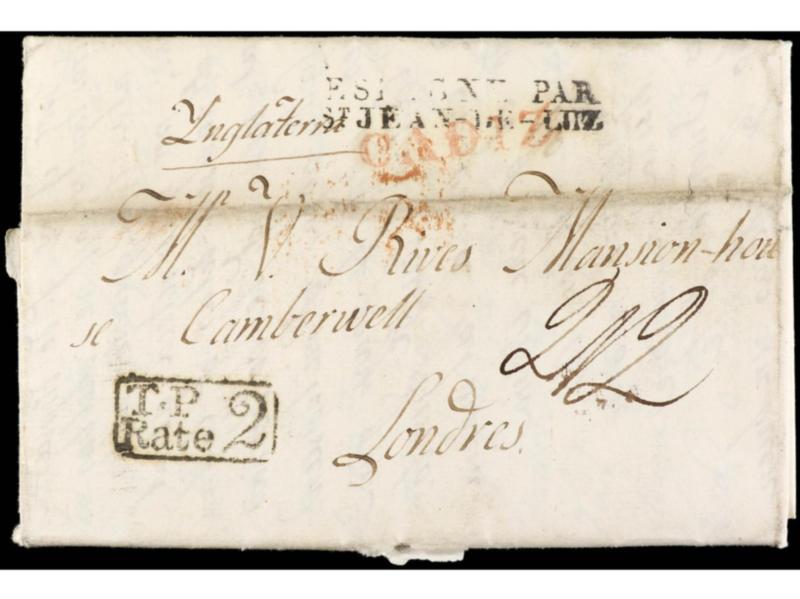 ESPAGNE PAR
ST JEAN-DE-LUZ
Ynglaterra
CADIZ
Mr. V. Rives Mansion-hou
se Camberwell
2/2
Londres.
T.P
Rate 2